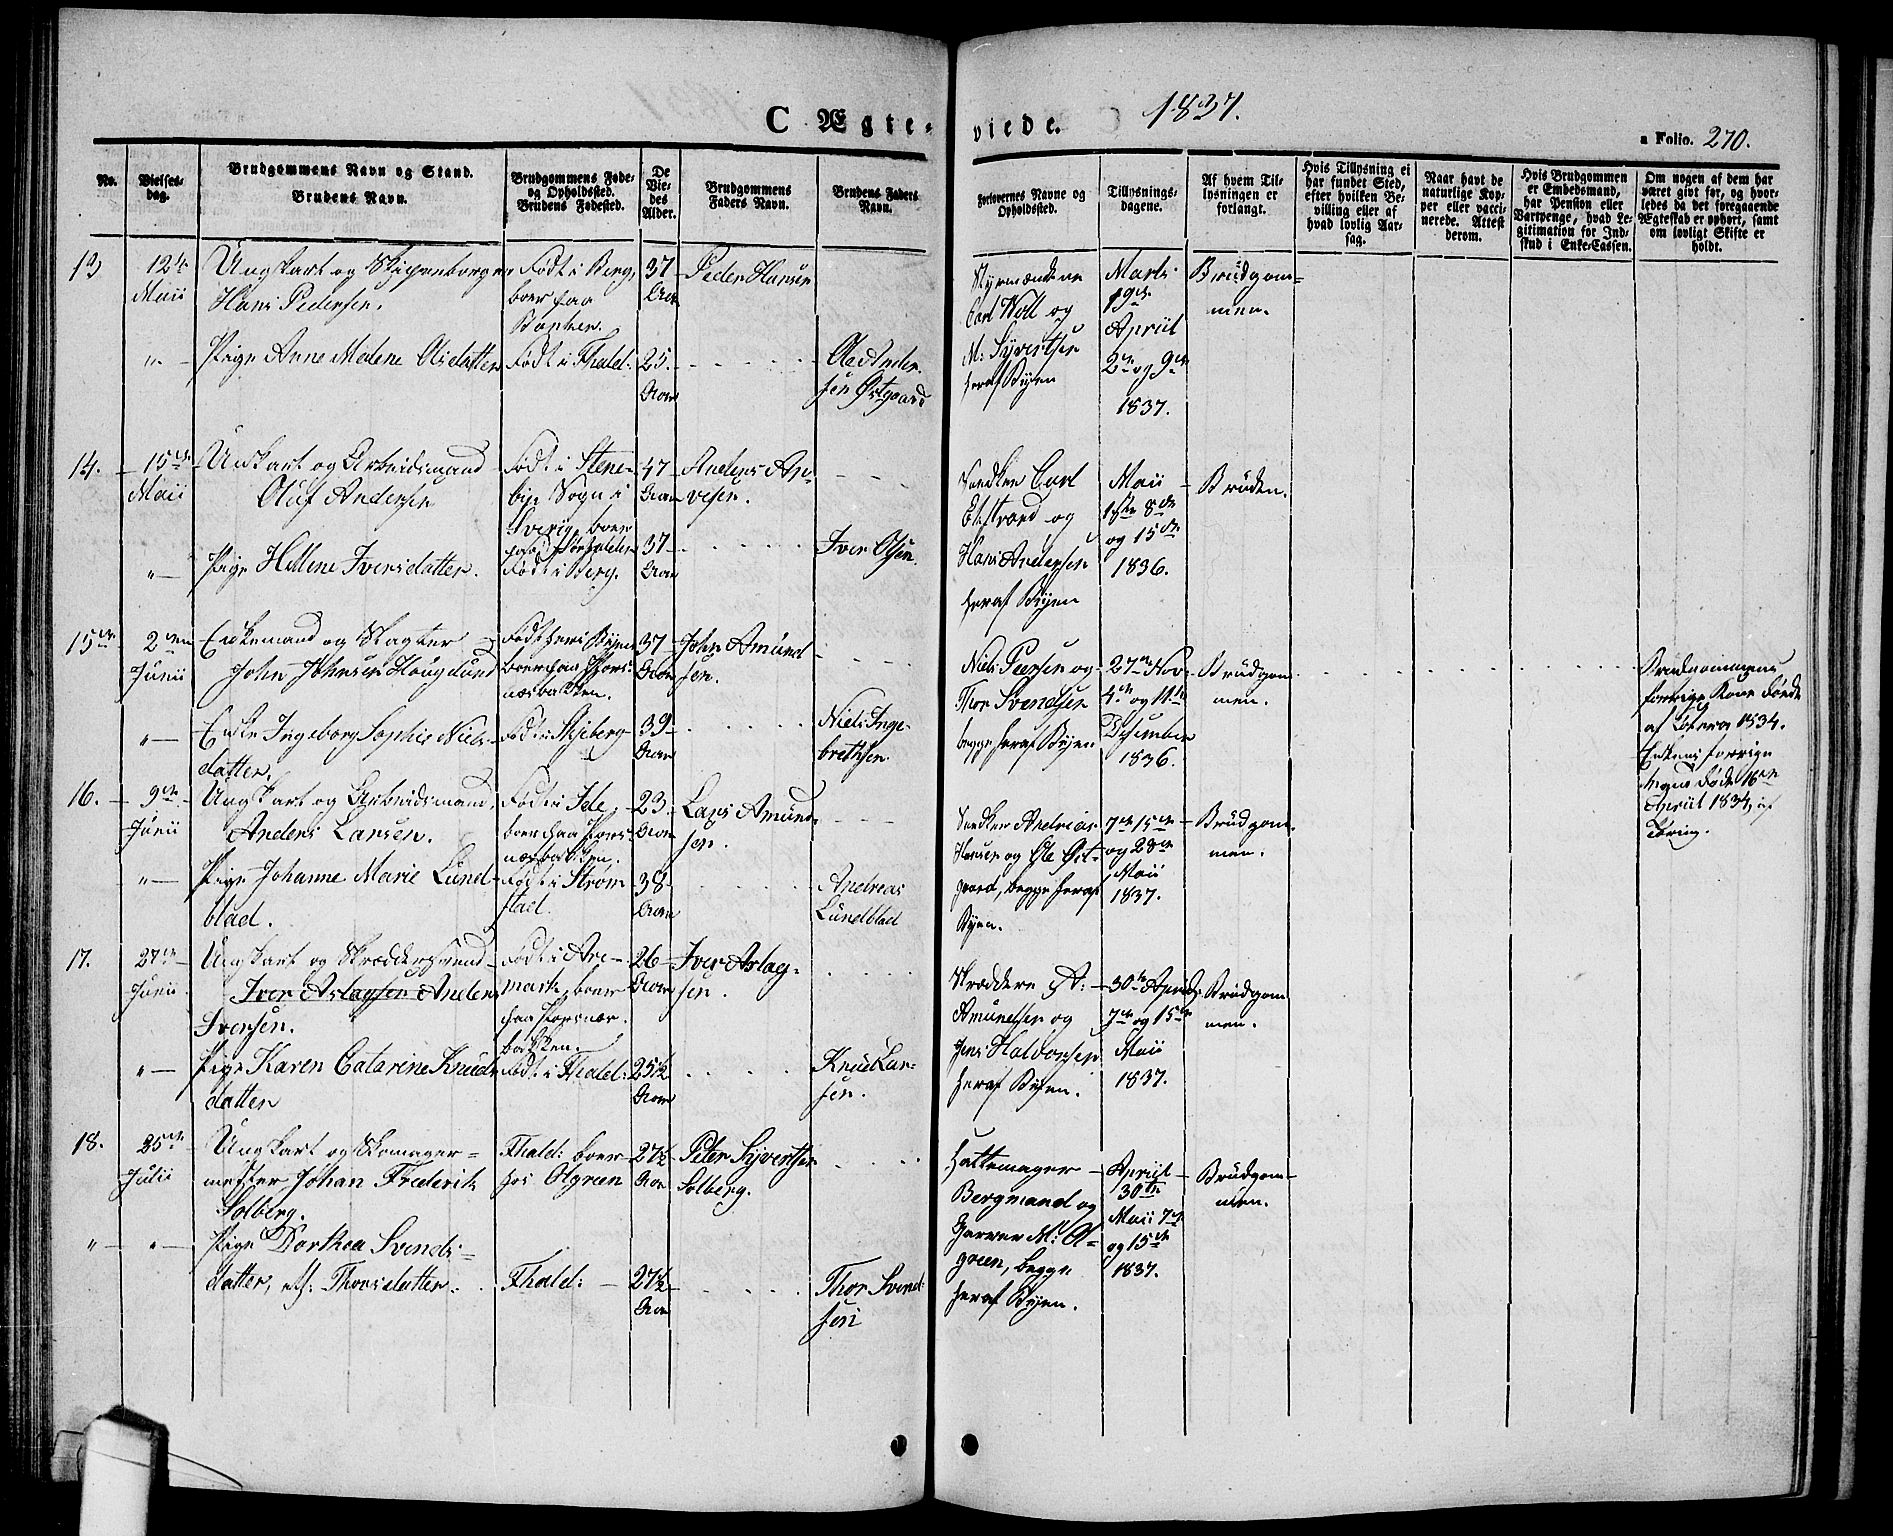 C Ægte-
viede.
1837.
a Folio. 270.
No.
Vielses-
dag.
Brudgommens Navn og Stand.
Brudens Navn.
Brudgommens Føde-
og Opholdssted.
Brudens Fødested.
De
Vie-
des
Alder.
Brudgommens
Faders Navn.
Brudens Faders
Navn.
Forlovernes Navne og
Opholdssted.
Tillysnings-
dagene.
Af hvem Til-
lysningen er
forlangt.
Hvis Tillysning ei
har fundet Sted,
efter hvilken Be-
villing eller af
hvad lovlig Aar-
sag.
Naar havt de
naturlige Kop-
per eller vacci-
nerede. Attest
derom.
Hvis Brudgommen
er Embedsmand,
har Pension eller
Vartpenge, hvad Le-
gitimation for Ind-
skud i Enke-Cassen.
Om nogen af dem har
været givt før, og hvor-
ledes da det foregaaende
Ægteskab er ophørt, samt
om lovligt Skifte er
holdt.
13
12te
Maii
Ungkarl og
Hans Pedersen.
Født i Berg,
boer paa
37
Aar
Peder Hansen
Styrmændene
Carl Woll og
M: Syvertsen
heraf Byen
Marts
19de
Apriil
2den og 9de
1837.
Brudgom-
men.
"
Pige Anne Malene Olsdatter
Født i Fhald:
25.
Aar
Ole Ander-
sen Østgaard
14.
15de
Maii
Unkarl og Arbeidsmand
Oluf Andersen
Født i Stene-
bye Sogn i
Sverig, boer
47
Aar
Anders Ar-
vesen.
Carl
Ekstrand og
Hans Andersen
heraf Byen
Maii
1ste 8de
og 15de
1836.
Bruden.
"
Pige Hellene Iversdatter.
Født i Berg.
37
Aar
Iver Olsen.
15de
2den
Junii
Enkemand og Slagter
John Johnsen Hougslund
Født her i Byen
boer paa Hors-
næsbakken.
37
Aar
John Amund
sen.
Niels Peersen og
Thor Svendsen
begge heraf Byen
27de Nov.
4de og 11te
December
1836.
Brudgom-
men.
Brudgommens
forrige Kone døde
af Tæring 1834.
Enkens forrige
Mand døde 16de
Apriil 1834, af
Tæring.
"
Enke Ingeborg Sophie Niels-
datter.
Født i Skjeberg
39
Aar
Niels Inge-
brethsen.
16.
9de
Junii
Ungkarl og Arbeidsmand
Anders Larsen.
Født i Ide,
boer paa Hors
næsbakken.
23
Aar
Lars Amund-
sen.
Andreas
Hansen og Ole Øst-
gaard, begge heraf
Byen.
7de 15de
og 28de
Maii
1837.
Brudgom-
men.
"
Pige Johanne Marie Lund-
blad.
Født i Strøm
stad.
38
Aar
Andreas
Lundblad
17.
27de
Junii
Ungkarl og Skræddersvend
Iver Aslagsen Anders
Svensen.
Født i Are-
mark, boer
paa Horsnæs-
bakken.
26
Aar
Iver Aslag-
sen.
Skræddere A:
Amundsen og
Jens Haldorsen
heraf Byen.
30te Apriil,
7de og 15de
Maii
1837.
Brudgom
men.
"
Pige Karen Catarine Knuds
datter
Født i Fhald:
25½
Aar
Knud Lar-
sen.
18.
25de
Julii
Ungkarl og Skomager-
mester Johan Frederik
Solberg.
Fhald: boer
hos Olgreen
27½
Aar
Peter Syvertsen
Solberg.
Hattemager
Bergmand og
Garver M: Ol-
green, begge
heraf Byen.
Apriil
30te
Maii 7de
og 15de
1837.
Brudgom-
men.
"
"
Pige Dorthea Svends-
datter, els: Thorsdatter.
Fhald:
27½
Aar
Thor Svend
sen